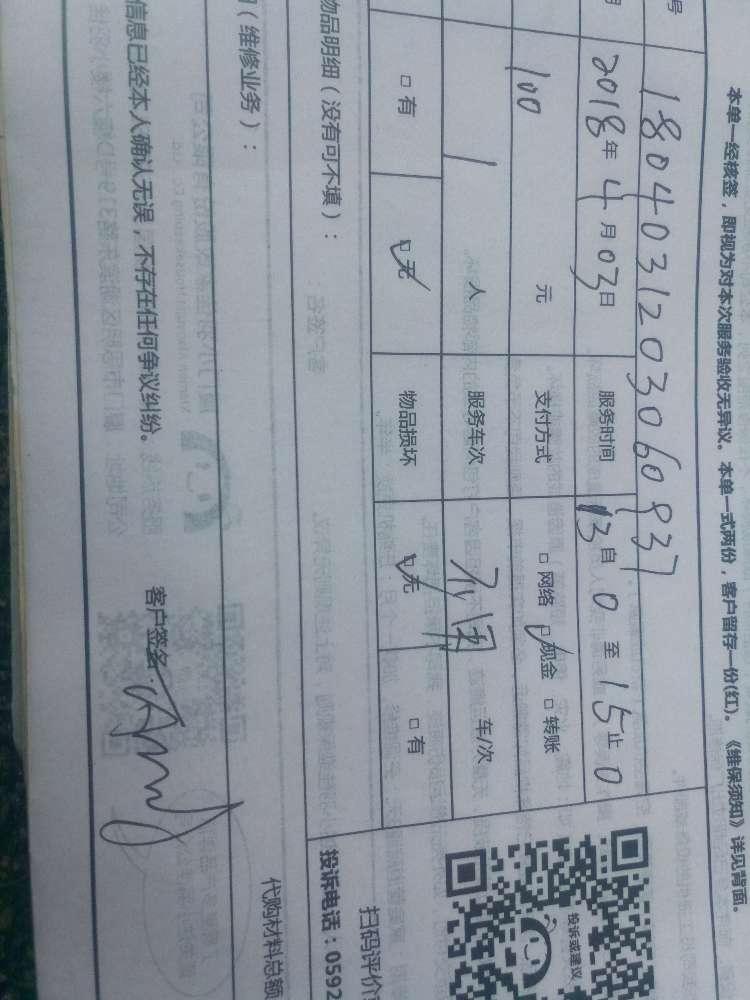 本单一经核签，即视为对本次服务验收无异议。本单一式两份，客户留存一份(红)。《维保须知》详见背面。
号 180403120306093
2018年4月03日 服务时间 13自0至15止0
100 元 支付方式 □网络 ☑现金 □转账
1 人 服务车次 车/次
□有 ☑无 物品损坏 ☑无 □有
物品明细（没有可不填）：
（维修业务）：
代购材料总额
信息已经本人确认无误，不存在任何争议纠纷。 客户签名：
投诉或建议
扫码评价
投诉电话：0592